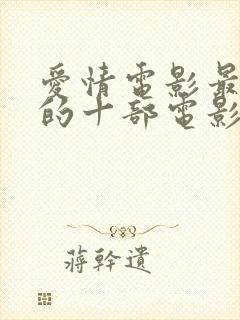 愛情電影最
的十部電影
蔣幹遺